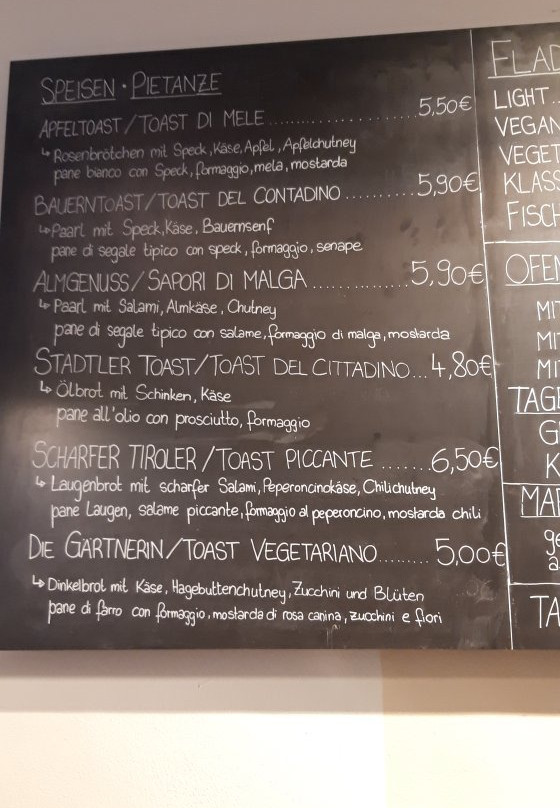 SPEISEN · PIETANZE
APFELTOAST / TOAST DI MELE.......................5,50€
↳ Rosenbrötchen mit Speck, Käse, Apfel, Apfelchutney
pane bianco con Speck, formaggio, mela, mostarda
BAUERNTOAST/TOAST DEL CONTADINO..........5,90€
↳ Paarl mit Speck, Käse, Bauernsenf
pane di segale tipico con speck, formaggio, senape
ALMGENUSS/ SAPORI DI MALGA..............5,90€
↳ Paarl mit Salami, Almkäse, Chutney
pane di segale tipico con salame, formaggio di malga, mostarda
STÄDTLER TOAST/TOAST DEL CITTADINO...4,80€
↳ Ölbrot mit Schinken, Käse
pane all'olio con prosciutto, formaggio
SCHARFER TIROLER / TOAST PICCANTE .......6,50€
↳ Laugenbrot mit scharfer Salami, Peperoncinokäse, Chilichutney
pane Laugen, salame piccante, formaggio al peperoncino, mostarda chili
DIE GÄRTNERIN/TOAST VEGETARIANO......... 5,00€
↳ Dinkelbrot mit Käse, Hagebuttenchutney, Zucchini und Blüten
pane di farro con formaggio, mostarda di rosa canina, zucchini e fiori
FLAD
LIGHT
VEGAN
VEGET
KLASS
FISCH
OFEN
MIT
MIT
MIT
TAGE
G
K
MA
ge
a
TA